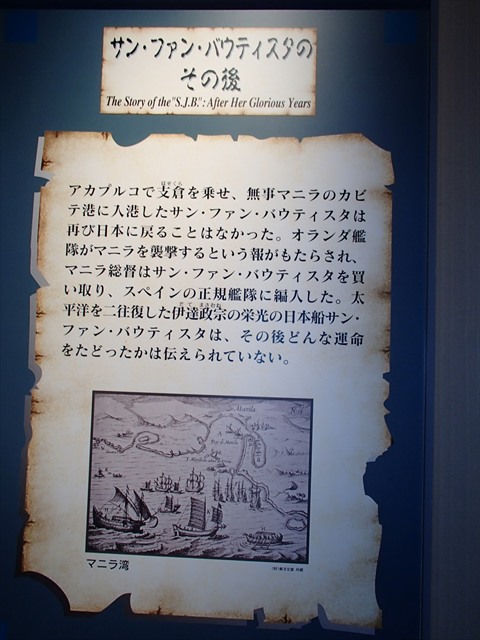 サン・ファン・バウティスタの
その後
The Story of the "S.J.B.": After Her Glorious Years
アカプルコで支倉を乗せ、無事マニラのカビ
テ港に入港したサン・ファン・バウティスタは
再び日本に戻ることはなかった。オランダ艦
隊がマニラを襲撃するという報がもたらされ、
マニラ総督はサン・ファン・バウティスタを買
い取り、スペインの正規艦隊に編入した。太
平洋を二往復した伊達政宗の栄光の日本船サン・
ファン・バウティスタは、その後どんな運命
をたどったかは伝えられていない。
マニラ湾